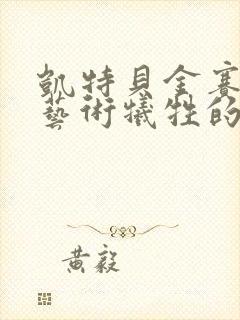 凱特貝金賽
藝術犧牲的
黃毅